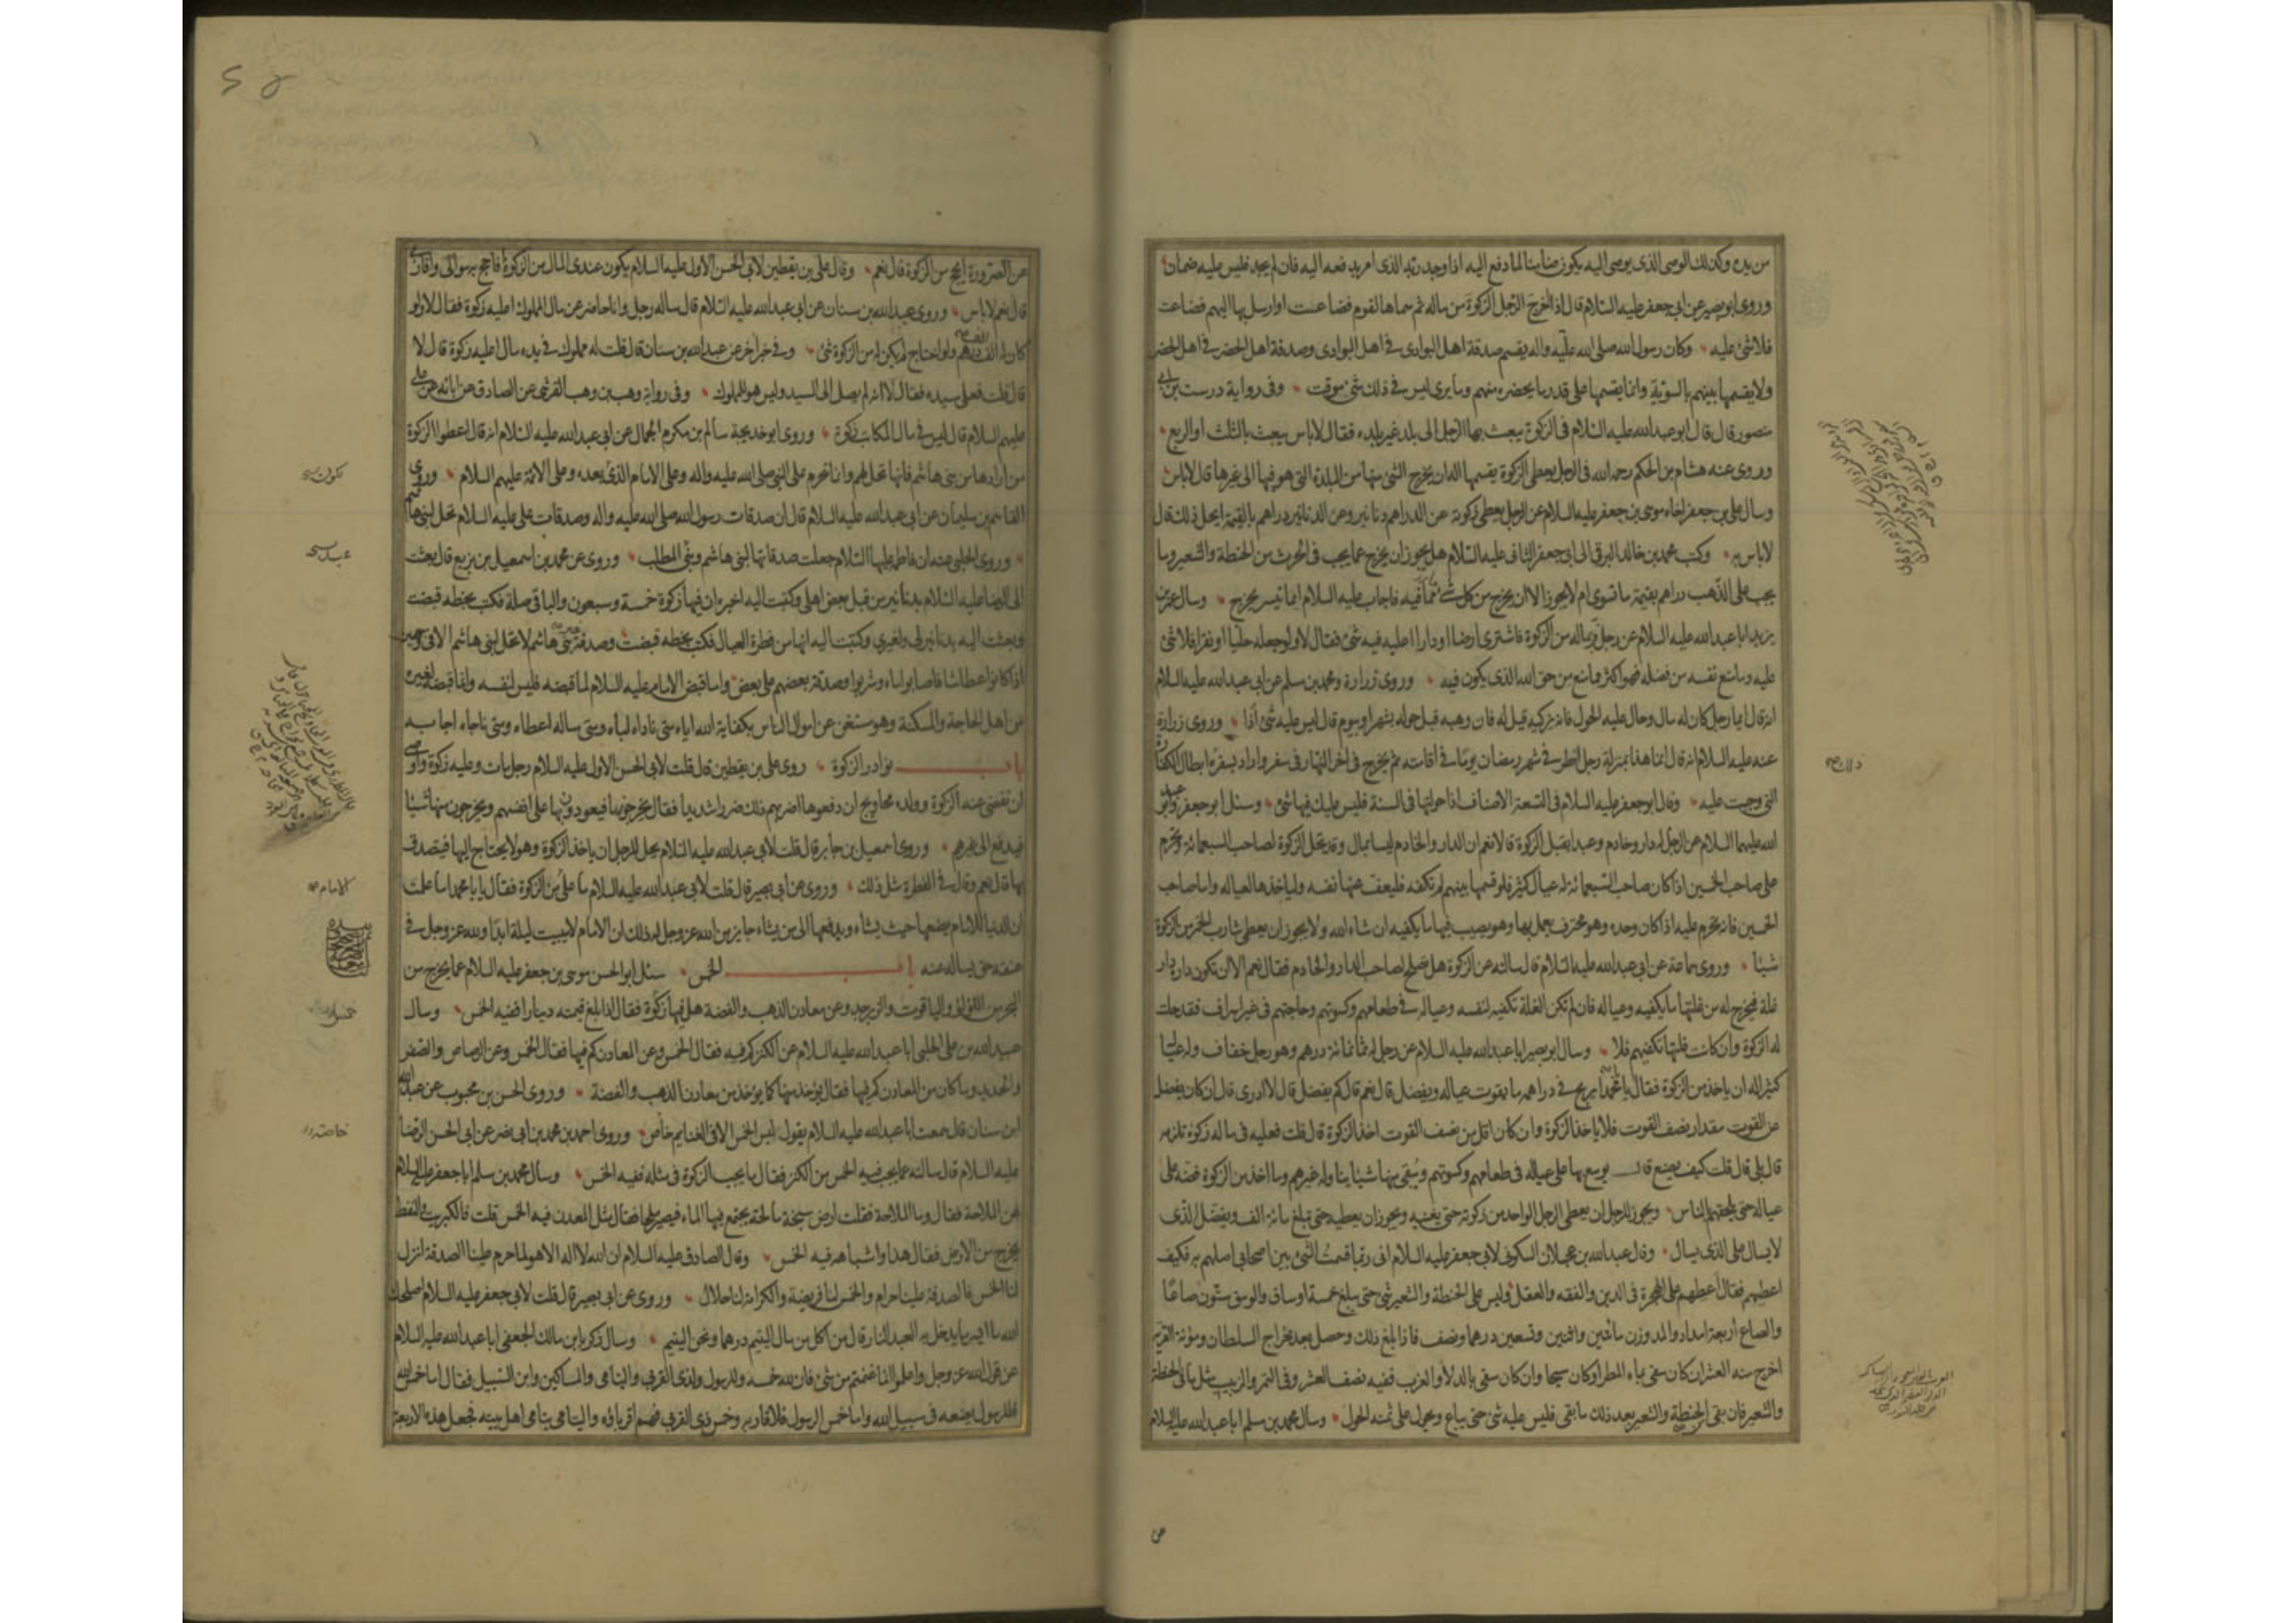 من يده وكذلك الوصى الذى يوصى اليه يكون ضامنا لما دفع اليه اذا وجد ربه الذى امر بدفعه اليه فان لم يجد فليس عليه ضمان
وروى ابو بصير عن ابى جعفر عليه السلام قال اذا اخرج الرجل الزكوة من ماله ثم سماها لقوم فضاعت او ارسل بها اليهم فضاعت
فلا شئ عليه وكان رسول الله صلى الله عليه واله يقسم صدقة اهل البوادى فى اهل البوادى وصدقة اهل الحضر فى اهل الحضر
ولا يقسمها بينهم بالسوية وانما يقسمها على قدر ما يحضره منهم وما يرى ليس فى ذلك شئ موقت وفى رواية درست بن ابى
منصور قال قال ابو عبد الله عليه السلام فى الزكوة يبعث بها الرجل الى بلد غير بلده فقال لا باس يبعث بالثلث او الربع
وروى عنه هشام بن الحكم رحمه الله فى الرجل يعطى الزكوة يقسمها اله ان يخرج الشئ منها من البلدة التى هو فيها الى غيرها قال لا باس
وسال على بن جعفر اخاه موسى بن جعفر عليه السلام عن الرجل يعطى زكوته عن الدراهم دنانير وعن الدنانير دراهم بالقيمة ايحل ذلك قال
لا باس به وكتب محمد بن خالد البرقى الى ابى جعفر الثانى عليه السلام هل يجوز ان يخرج عما يجب فى الحرث من الحنطة والشعير وما
يجب على الذهب دراهم بقيمة ما تسوى ام لا يجوز الا ان يخرج من كل شئ ما فيه فاجاب عليه السلام ايما تيسر يخرج وسال عمر بن
يزيد ابا عبد الله عليه السلام عن رجل فر بماله من الزكوة فاشترى ارضا او دارا اعليه فيه شئ فقال لا ولو جعله حليا او نقرا فلا شئ
عليه وما منع نفسه من فضله فهو اكثر مما منع من حق الله الذى يكون فيه وروى زرارة ومحمد بن مسلم عن ابى عبد الله عليه السلام
انه قال ايما رجل كان له مال وحال عليه الحول فانه يزكيه قيل له فان وهبه قبل حوله بشهر او بيوم قال ليس عليه شئ اذا وروى زرارة
عنه عليه السلام انه قال انما هذا بمنزلة رجل افطر فى شهر رمضان يوما فى اقامته ثم يخرج فى اخر النهار فى سفر واراد بسفره ابطال الكفارة
التى وجبت عليه وقال ابو جعفر عليه السلام فى التسعة الاصناف اذا حولتها فى السنة فليس عليك فيها شئ وسئل ابو جعفر وابو عبد
الله عليهما السلام عن الرجل له دار وخادم وعبد ايقبل الزكوة قالا نعم ان الدار والخادم ليسا بمال وقد تحل الزكوة لصاحب السبعمائة وتحرم
على صاحب الخمسين اذا كان صاحب السبعمائة له عيال كثير فلو قسمها بينهم لم تكفه فليعف عنها نفسه ولياخذها لعياله واما صاحب
الخمسين فانه تحرم عليه اذا كان وحده وهو محترف يعمل بها وهو يصيب فيها ما يكفيه ان شاء الله ولا يجوز ان يعطى شارب الخمر من الزكوة
شيئا وروى سماعة عن ابى عبد الله عليه السلام قال سالته عن الزكوة هل تصلح لصاحب الدار والخادم فقال نعم الا ان تكون داره دار
غلة فيخرج له من غلتها ما يكفيه وعياله فان لم تكن الغلة تكفيه لنفسه وعياله فى طعامهم وكسوتهم وحاجتهم فى غير اسراف فقد حلت
له الزكوة وان كانت غلتها تكفيهم فلا وسال ابو بصير ابا عبد الله عليه السلام عن رجل له ثمانمائة درهم وهو رجل خفاف وله عيال
كثير اله ان ياخذ من الزكوة فقال يا ابا محمد ايربح فى دراهمه ما يقوت عياله ويفضل قال نعم قال كم يفضل قال لا ادرى قال ان كان يفضل
عن القوت مقدار نصف القوت فلا ياخذ الزكوة وان كان اقل من نصف القوت اخذ الزكوة قال قلت فعليه فى ماله زكوة تلزمه
قال بلى قال قلت كيف يصنع قال يوسع بها على عياله فى طعامهم وكسوتهم ويبقى منها شيئا يناوله غيرهم وما اخذ من الزكوة فضه على
عياله حتى يلحقهم بالناس ويجوز للرجل ان يعطى الرجل الواحد من زكوته حتى يغنيه ويجوز ان يعطيه حتى تبلغ مائة الف ويفضل الذى
لا يسال على الذى يسال وقال عبد الله بن عجلان السكونى لابى جعفر عليه السلام انى ربما قسمت الشئ بين اصحابى اصلهم به فكيف
اعطيهم فقال اعطهم على الهجرة فى الدين والفقه والعقل وليس على الحنطة والشعير شئ حتى يبلغ خمسة اوساق والوسق ستون صاعا
والصاع اربعة امداد والمد وزن مائتين واثنين وتسعين درهما ونصف فاذا بلغ ذلك وحصل بعد خراج السلطان ومؤنة القرية
اخرج منه العشر ان كان سقى بماء المطر او كان سيحا وان كان سقى بالدلاء والغرب ففيه نصف العشر وفى التمر والزبيب مثل ما فى الحنطة
والشعير فان بقى الحنطة والشعير بعد ذلك ما بقى فليس عليه شئ حتى يباع ويحول على ثمنه الحول وسال محمد بن مسلم ابا عبد الله عليه السلام
عن
عن الصرورة ايحج من الزكوة قال نعم وقال على بن يقطين لابى الحسن الاول عليه السلام يكون عندى المال من الزكوة فاحج به موالى واقاربى
قال نعم لا باس وروى عبد الله بن سنان عن ابى عبد الله عليه السلام قال ساله رجل وانا حاضر عن مال المملوك اعليه زكوة فقال لا ولو
كان له الف الف درهم ولو احتاج لم يكن له من الزكوة شئ وفى خبر اخر عن عبد الله بن سنان قال قلت له مملوك فى يده مال اعليه زكوة قال لا
قال قلت فعلى سيده فقال لا انه لم يصل الى السيد وليس هو للمملوك وفى رواية وهب بن وهب القرشى عن الصادق عن ابائه عن على
عليهم السلام قال ليس فى مال المكاتب زكوة وروى ابو خديجة سالم بن مكرم الجمال عن ابى عبد الله عليه السلام انه قال اعطوا الزكوة
من ارادها من بنى هاشم فانها تحل لهم وانما تحرم على النبى صلى الله عليه واله وعلى الامام الذى بعده وعلى الائمة عليهم السلام وروى
القاسم بن سليمان عن ابى عبد الله عليه السلام قال ان صدقات رسول الله صلى الله عليه واله وصدقات على عليه السلام تحل لبنى هاشم
وروى الحلبى عنه ان فاطمة عليها السلام جعلت صدقاتها لبنى هاشم وبنى المطلب وروى عن محمد بن اسمعيل بن بزيع قال بعثت
الى الرضا عليه السلام بدنانير من قبل بعض اهلى وكتبت اليه اخبره ان فيها زكوة خمسة وسبعون والباقى صلة فكتب بخطه قبضت
وبعثت اليه بدنانير لى ولغيرى وكتبت اليه انها من فطرة العيال فكتب بخطه قبضت وصدقة بنى هاشم لا تحل لبنى هاشم الا فى وجهين
اذا كانوا عطاشا فاصابوا ماء وشربوا وصدقة بعضهم على بعض واما قبض الامام عليه السلام لما قبضه فليس لنفسه وانما قبضه لغيره
من اهل الحاجة والمسكنة وهو مستغن عن اموال الناس بكفاية الله اياه متى ناداه لباه ومتى ساله اعطاه ومتى ناجاه اجابه
باب نوادر الزكوة روى على بن يقطين قال قلت لابى الحسن الاول عليه السلام رجل مات وعليه زكوة واوصى
ان تقضى عنه الزكوة وولده محاويج ان دفعوها اضر بهم ذلك ضررا شديدا فقال يخرجونها فيعودون بها على انفسهم ويخرجون منها شيئا
فيدفع الى غيرهم وروى اسمعيل بن جابر قال قلت لابى عبد الله عليه السلام يحل للرجل ان ياخذ الزكوة وهو لا يحتاج اليها فيتصدق
بها قال نعم وقال فى الفطرة مثل ذلك وروى عن ابى بصير قال قلت لابى عبد الله عليه السلام ما على من الزكوة فقال يا ابا محمد اما علمت
ان الدنيا للامام يضعها حيث يشاء ويدفعها الى من يشاء جايز من الله عز وجل له ذلك ان الامام لا يبيت ليلة ابدا ولله عز وجل فى
عنقه حق يساله عنه باب الخمس سئل ابو الحسن موسى بن جعفر عليه السلام عما يخرج من
البحر من اللؤلؤ والياقوت والزبرجد وعن معادن الذهب والفضة هل فيها زكوة فقال اذا بلغ قيمته دينارا ففيه الخمس وسال
عبيد الله بن على الحلبى ابا عبد الله عليه السلام عن الكنز كم فيه فقال الخمس وعن المعادن كم فيها فقال الخمس وعن الرصاص والصفر
والحديد وما كان من المعادن كم فيها فقال يؤخذ منها كما يؤخذ من معادن الذهب والفضة وروى الحسن بن محبوب عن عبد الله
ابن سنان قال سمعت ابا عبد الله عليه السلام يقول ليس الخمس الا فى الغنايم خاص وروى احمد بن محمد بن ابى نصر عن ابى الحسن الرضا
عليه السلام قال سالته عما يجب فيه الخمس من الكنز فقال ما يجب الزكوة فى مثله ففيه الخمس وسال محمد بن مسلم ابا جعفر عليه السلام
عن الملاحة فقال وما الملاحة فقلت ارض سبخة مالحة يجتمع فيها الماء فيصير ملحا فقال مثل المعدن فيه الخمس قلت فالكبريت والنفط
يخرج من الارض فقال هذا واشباهه فيه الخمس وقال الصادق عليه السلام ان الله لا اله الا هو لما حرم علينا الصدقة انزل
لنا الخمس فالصدقة علينا حرام والخمس لنا فريضة والكرامة لنا حلال وروى عن ابى بصير قال قلت لابى جعفر عليه السلام اصلحك
الله ما ايسر ما يدخل به العبد النار قال من اكل من مال اليتيم درهما ونحن اليتيم وسال زكريا بن مالك الجعفى ابا عبد الله عليه السلام
عن قول الله عز وجل واعلموا انما غنمتم من شئ فان لله خمسه وللرسول ولذى القربى واليتامى والمساكين وابن السبيل فقال اما خمس الله
فللرسول يضعه فى سبيل الله واما خمس الرسول فلاقاربه وخمس ذى القربى فهم اقرباؤه واليتامى يتامى اهل بيته فجعل هذه الاربعة